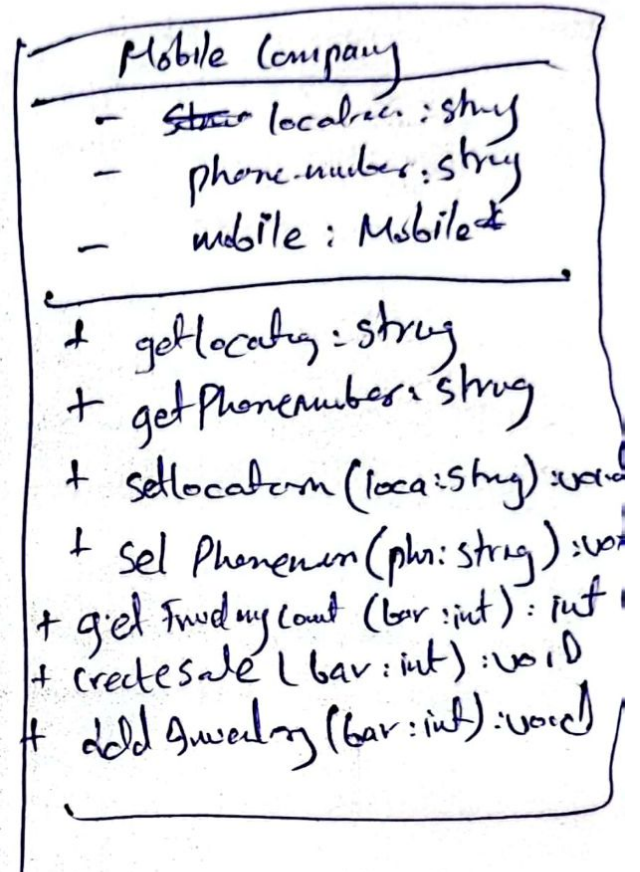 Mobile Company
- location : string
- phone-number : string
- mobile : Mobile
+ getlocation : string
+ getPhonenumber : string
+ setlocation (loca : string) : void
+ set Phonenum (phn : string) : void
+ get Inventory Count (bar : int) : int
+ createsale (bar : int) : void
+ add Inventory (bar : int) : void